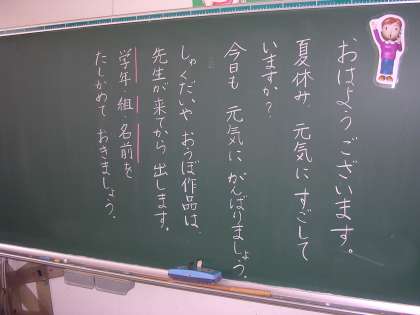 おはようございます。
夏休み、元気に すごして
いますか?
今日も 元気に がんばりましょう。
しゅくだいや おうぼ作品は、
先生が来てから 出します。
学年・組・名前を
たしかめて おきましょう。